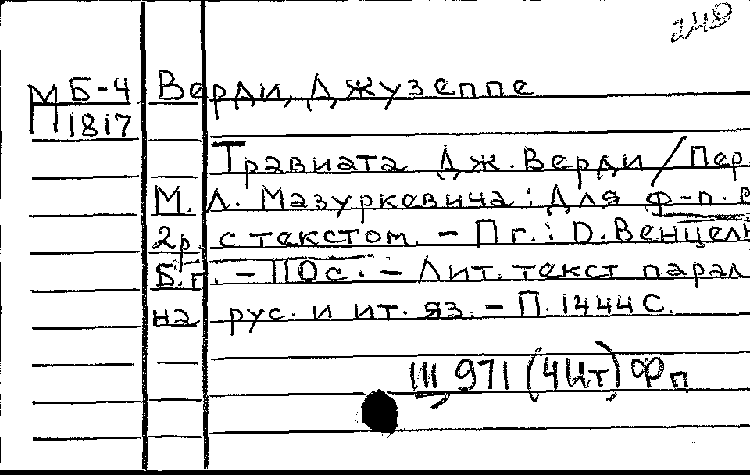 240
М Б-4 Верди, Джузеппе
1817
Травиата Дж. Верди / Пер.
М. Л. Мазуркевича: Для ф-п. в
2р. с текстом. – Пг.: D. Венцель
Б.г. – 110с. – Лит. текст парал
на рус. и ит. яз. – П. 1444 С.
III, 971 (4Ит) Фп